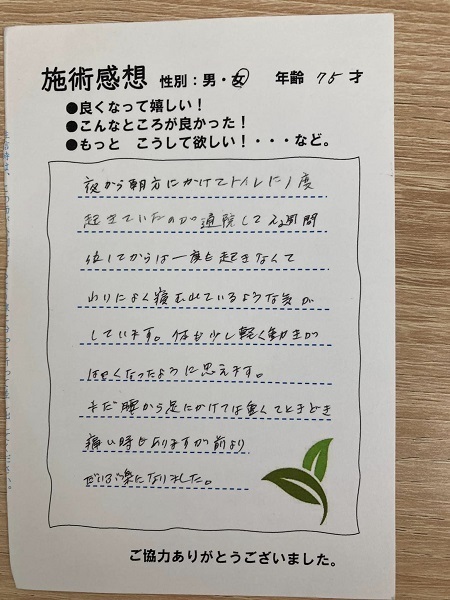 施術感想 性別：男・女 年齢 75 才
●良くなって嬉しい！
●こんなところが良かった！
●もっと こうして欲しい！・・・など。
夜から朝方にかけてトイレに1度
起きていたのが通院して2週間
位してからは一度も起きなくて
わりによく寝れているような気が
しています。体も少し軽く動きが
はやくなったように思えます。
まだ腰から足にかけては重くてときどき
痛い時もありますが前より
だいぶ楽になりました。
ご協力ありがとうございました。